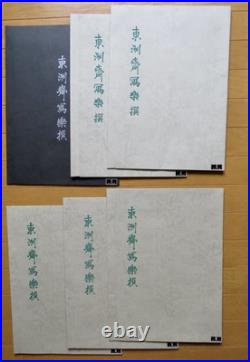 東洲齋寫樂撰
東洲齋寫樂撰
東洲齋寫樂撰
東洲齋寫樂撰
東洲齋寫樂撰
東洲齋寫樂撰